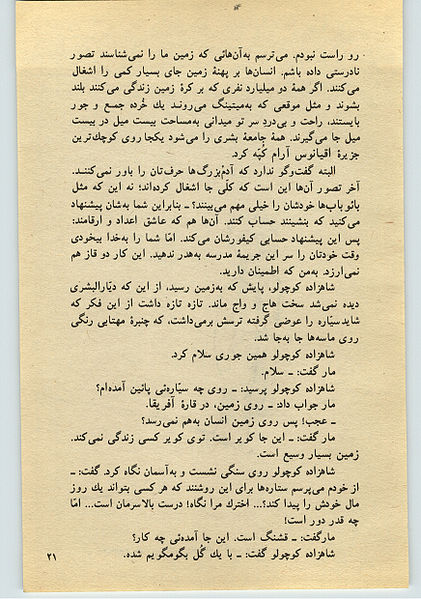 رو راست نبودم. می‌ترسم به‌آن‌هائی که زمین ما را نمی‌شناسند تصور
نادرستی داده باشم. انسان‌ها بر پهنهٔ زمین جای بسیار کمی را اشغال
می‌کنند. اگر همهٔ دو میلیارد نفری که بر کرهٔ زمین زندگی می‌کنند بلند
بشوند و مثل موقعی که به‌میتینگ می‌روند یك خُرده جمع و جور
بایستند، راحت و بی‌دردِ سر تو میدانی به‌مساحت بیست میل در بیست
میل جا می‌گیرند. همهٔ جامعهٔ بشری را می‌شود یکجا روی کوچك‌ترین
جزیرهٔ اقیانوس آرام کُپّه کرد.
البته گفت‌وگو ندارد که آدم‌بزرگ‌ها حرف‌تان را باور نمی‌کنند.
آخر تصور آن‌ها این است که کلّی جا اشغال کرده‌اند؛ نه این که مثل
بائوباب‌ها خودشان را خیلی مهم می‌بینند؟ ـ بنابراین شما به‌شان پیشنهاد
می‌کنید که بنشینند حساب کنند. آن‌ها هم که عاشق اعداد و ارقامند:
پس این پیشنهاد حسابی کیفورشان می‌کند. امّا شما را به‌خدا بیخودی
وقت خودتان را سر این جریمهٔ مدرسه به‌هدر ندهید. این کار دو قاز هم
نمی‌ارزد. به‌من که اطمینان دارید.
شاهزاده کوچولو، پایش که به‌زمین رسید، از این که دیّارالبشری
دیده نمی‌شد سخت هاج و واج ماند. تازه تازه داشت از این فکر که
شاید سیّاره را عوضی گرفته ترسش برمی‌داشت، که چنبرهٔ مهتابی رنگی
روی ماسه‌ها جا به‌جا شد.
شاهزاده کوچولو همین جوری سلام کرد.
مار گفت: ـ سلام.
شاهزاده کوچولو پرسید: ـ روی چه سیّاره‌ئی پائین آمده‌ام؟
مار جواب داد: ـ روی زمین، در قارهٔ آفریقا.
ـ عجب! پس روی زمین انسان به‌هم نمی‌رسد؟
مار گفت: ـ این جا کویر است. توی کویر کسی زندگی نمی‌کند.
زمین بسیار وسیع است.
شاهزاده کوچولو روی سنگی نشست و به‌آسمان نگاه کرد. گفت: ـ
از خودم می‌پرسم ستاره‌ها برای این روشنند که هر کسی بتواند یك روز
مال خودش را پیدا کند؟... اخترك مرا نگاه! درست بالا سرمان است... امّا
چه قدر دور است!
مار گفت: ـ قشنگ است. این جا آمده‌ئی چه کار؟
شاهزاده کوچولو گفت: ـ با یك گُل بگومگویم شده.
۲۱